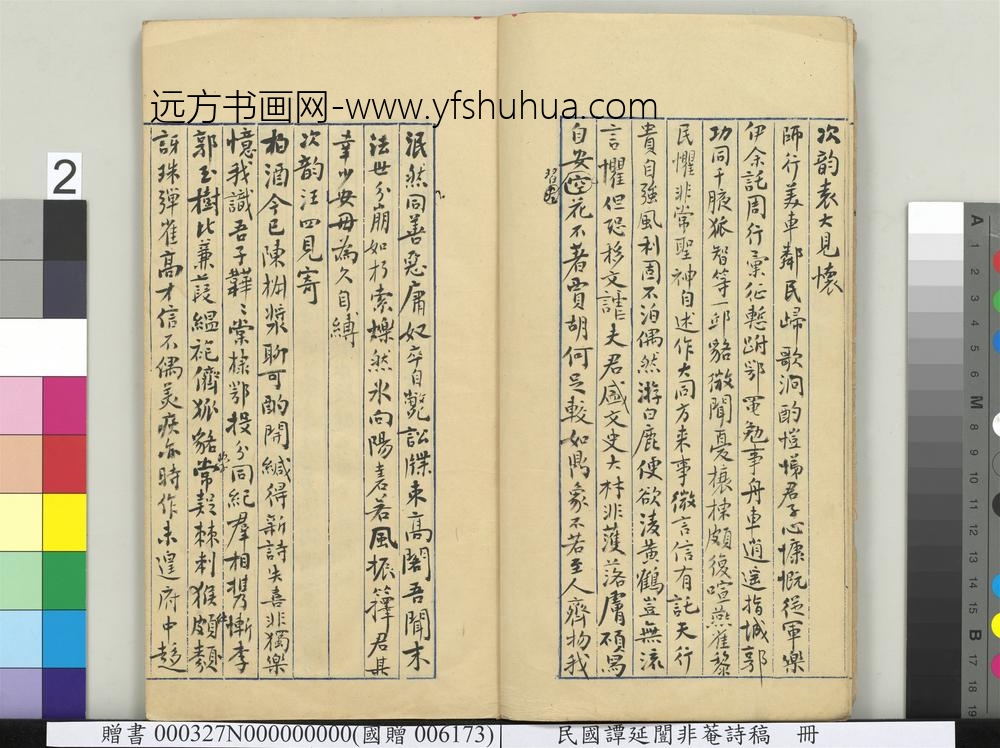 远方书画网-www.yfshuhua.com
次韵袁大見懷
師行美車鄰民歸歌泂酌愷悌君子心慷慨從軍樂
伊余託周行彙征慙跗鄂黽勉事舟車逍遥指城郭
功同千腋狐智等一邱貉微聞憂榱棟頗復喧燕雀黎
民懼非常聖神自述作大同方来事微言信有託天行
貴自強風利固不泊偶然游白鹿便欲淩黄鶴豈無流
言懼但恐移文謔夫君感文史大材非濩落膚碩寫
自安空花不著賈胡何足較如鳴象不若至人齊物我
泯然同善惡庸奴卒自斃訟牒束高閣吾聞末
法世分崩如朽索爍然氷向陽嘉若風振籜君其
幸少安毋為久自縛
次韵汪四見寄
柏酒今已陳枏漿聊可酌開緘得新詩失喜非獨樂
憶我識吾子韡〻棠棣鄂投分同紀羣相携慚李
郭玉樹比蒹葭緼袍儕狐貉常疑棘刺猴頗類
訝珠彈雀高才信不偶美疢亦時作未遑府中趨
2
贈書 000327N000000000(國贈 006173)
民國譚延闓非菴詩稿 冊
A 1 2 3 4 5 6 M 8 9 10 11 12 13 14 15 B 17 18 19